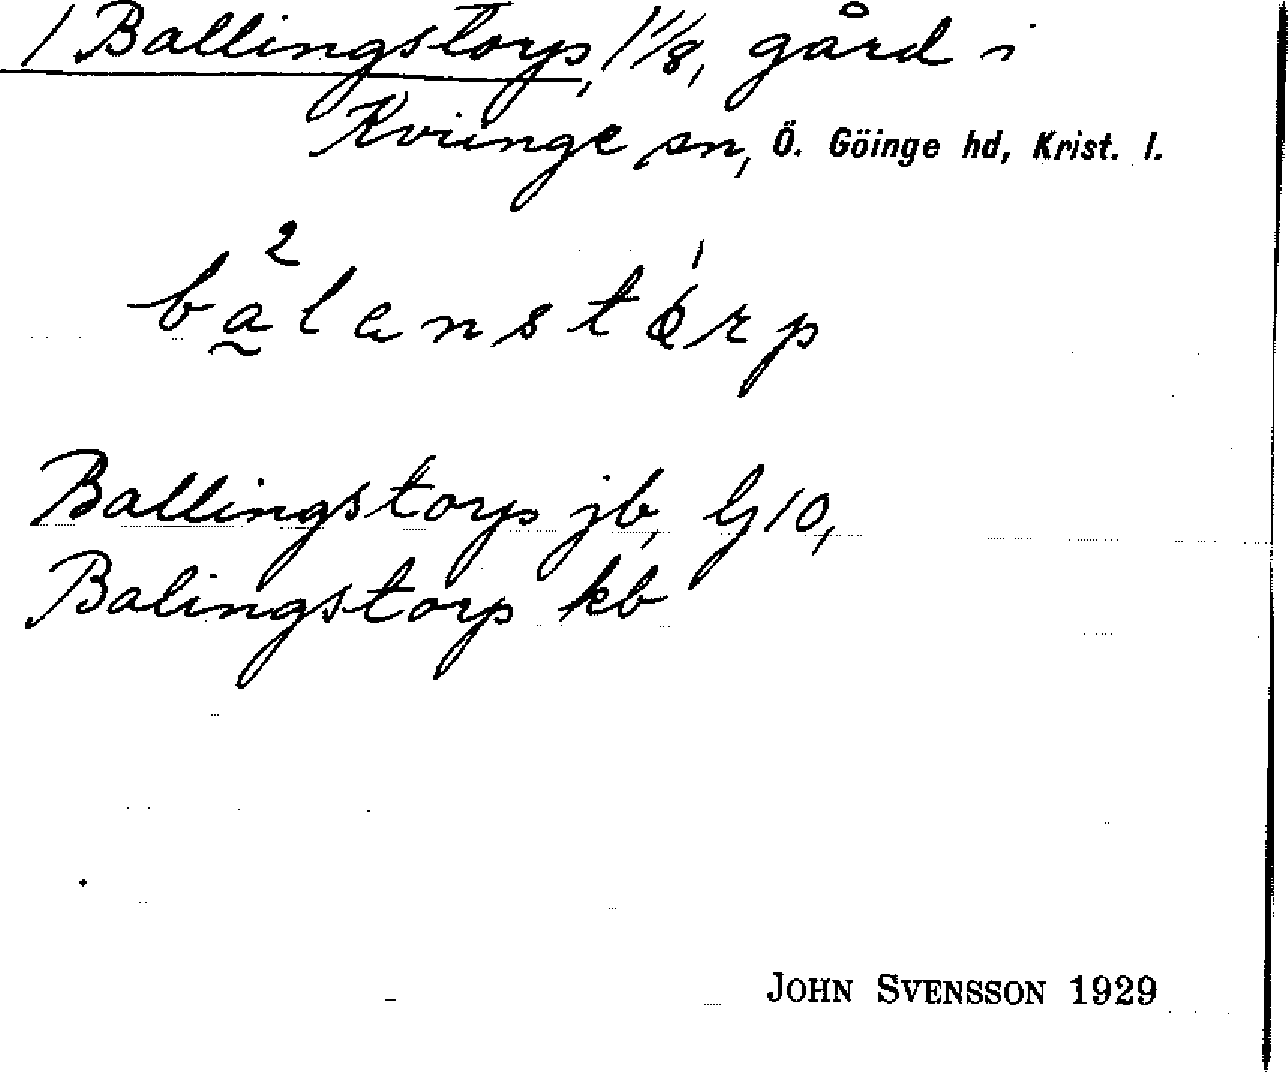 1 Ballingstorp, 1 1/8, gård i
Kviinge sn, Ö. Göinge hd, Krist. l.
Ballingstorp jb, G 10,
Balingstorp kb
JOHN SVENSSON 1929